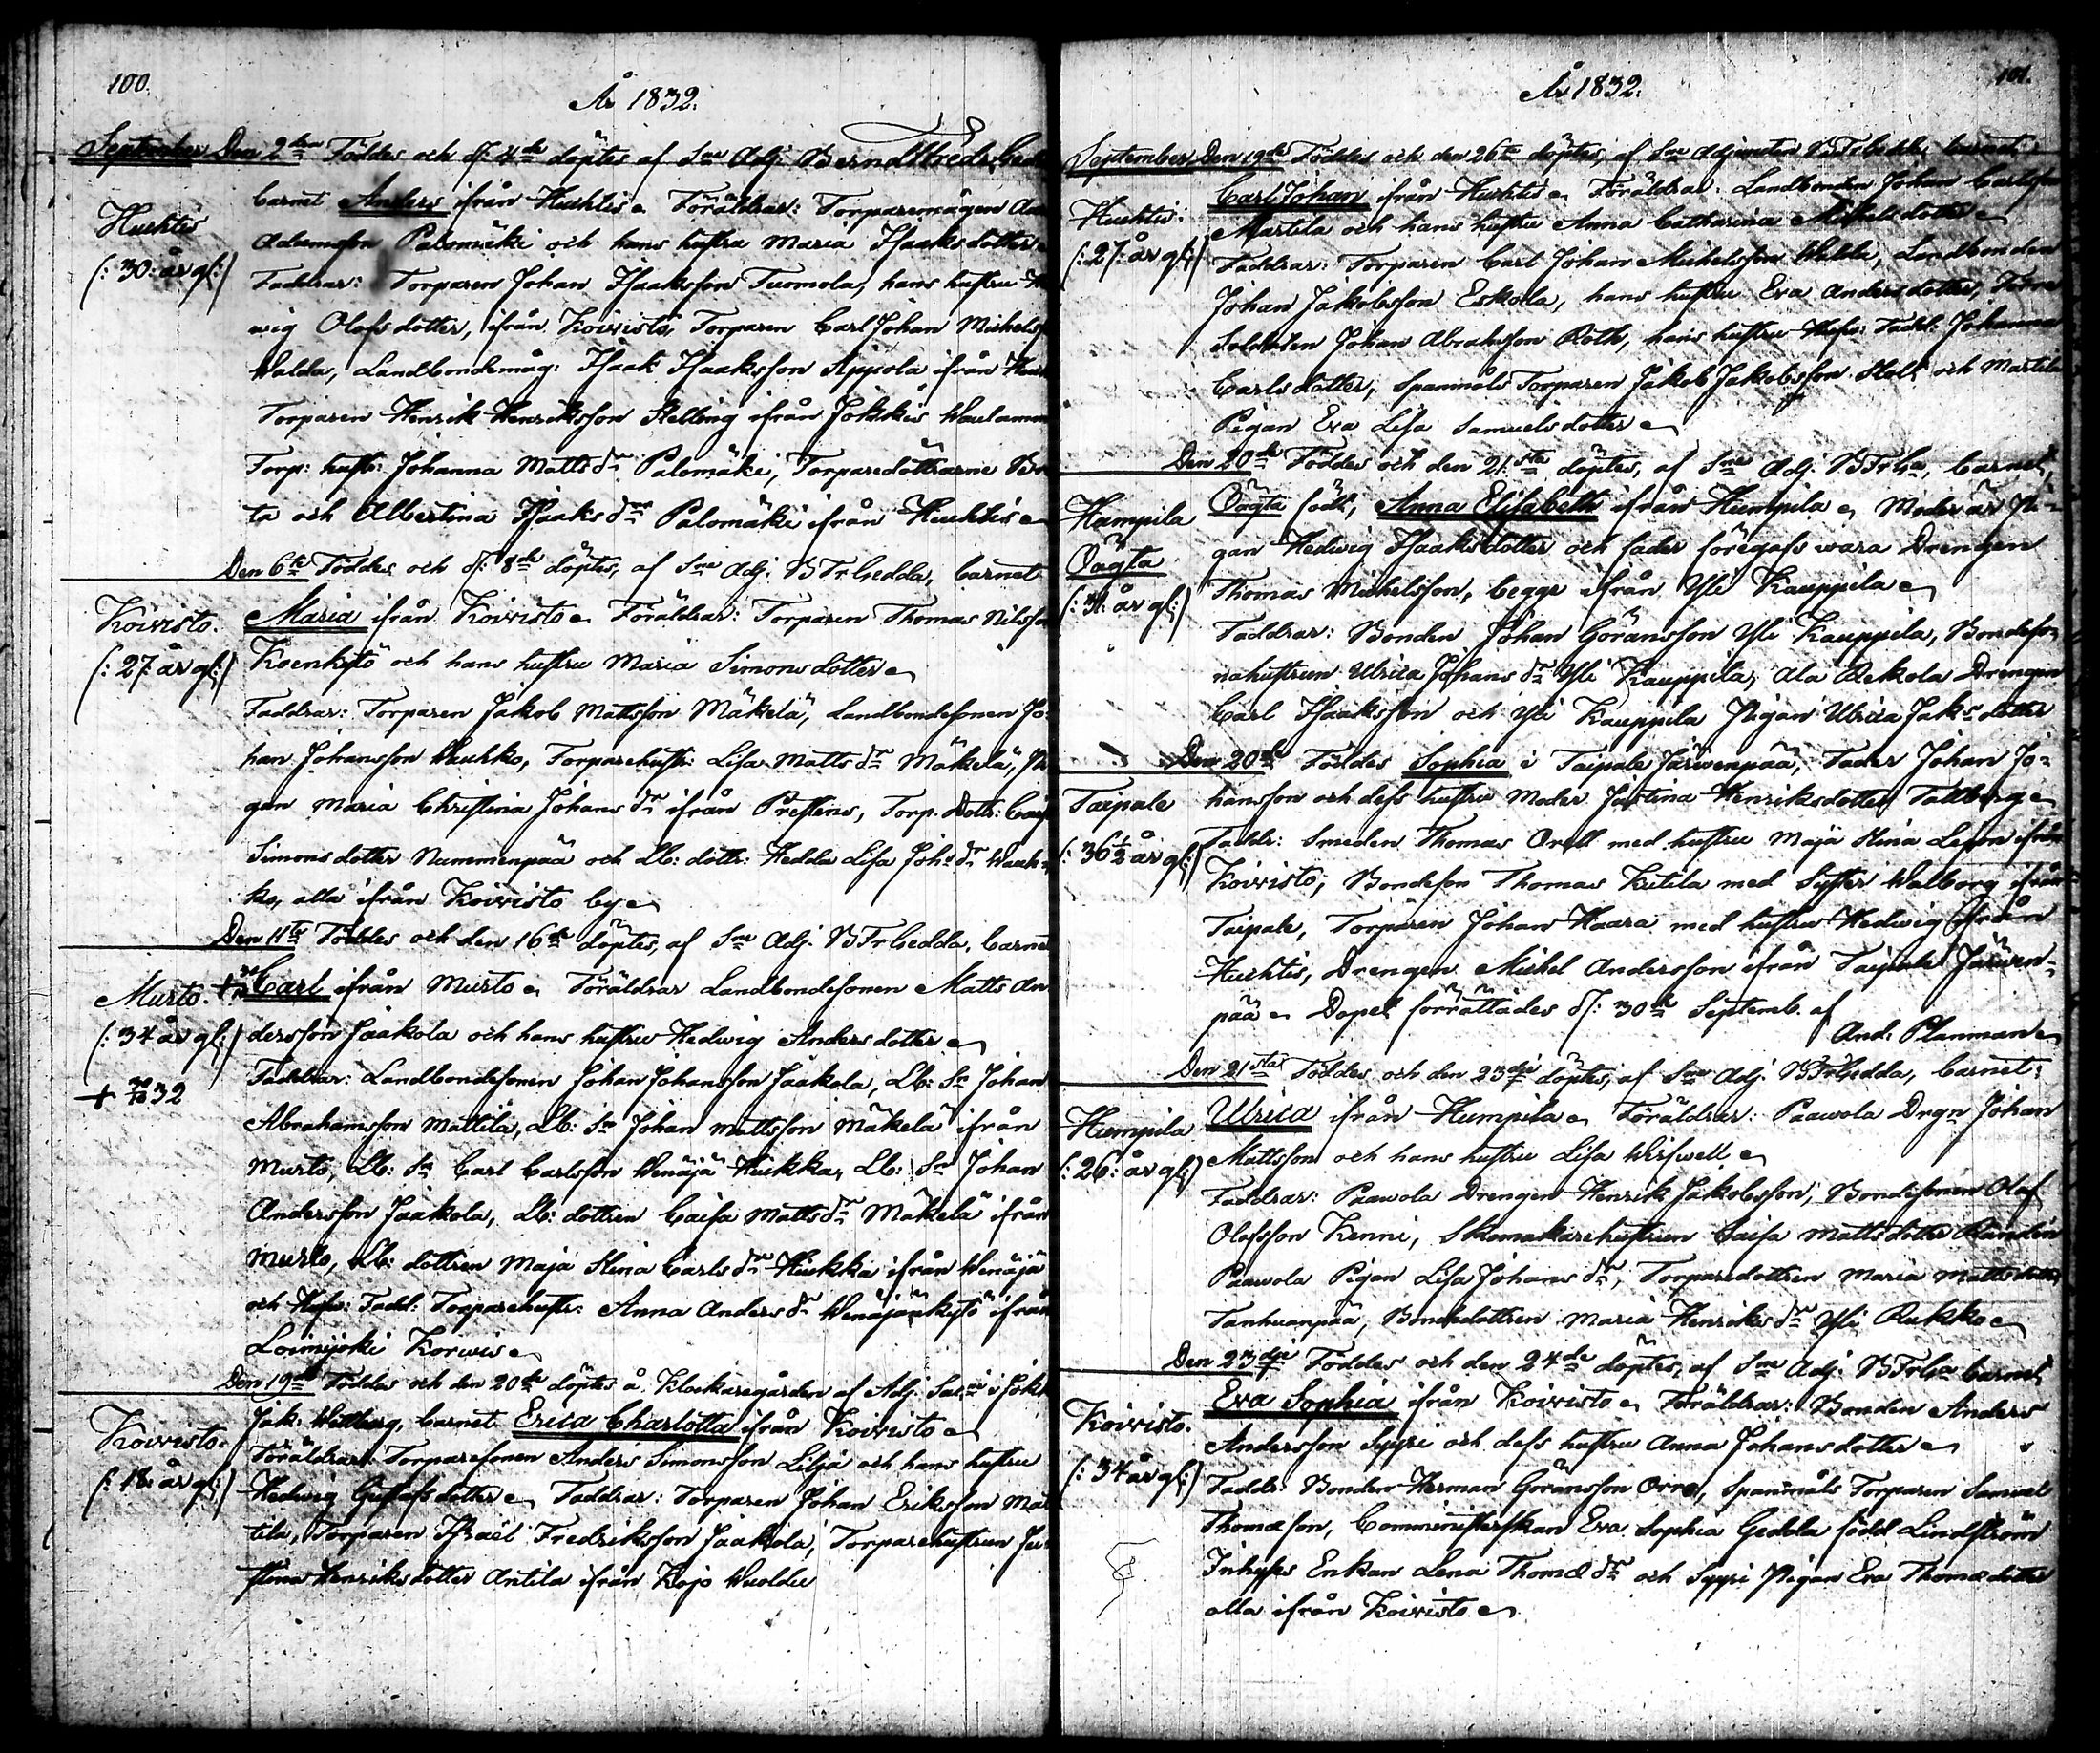 100.
År 1832.
September Den 2dra Föddes och d: 4de döptes af Sne Adj. Berndt Fredr. Gedda
Huhtis
(: 30: år gl:)
barnet Anders ifrån Huhtis. Föräldrar: Torparemågen
Adamsson Palomäki och hans hustru Maria Isaaksdotter
Faddrar: Torparen Johan Isaaksson Tuomola, hans hustru
wig Olofsdotter, ifrån Koivisto, Torparen Carl Johan Michelsson
Walda, Landbondemåg: Isaak Isaaksson Äppola ifrån
Torparen Henrik Henriksson Helling ifrån Jokkis
Torp: hustr: Johanna Mattsdr Palomäki, Torparedöttrarne
ta och Albertina Isaaksdr Palomäki ifrån Huhtis
Den 6te Föddes och d: 8de döptes, af Sne Adj. B Fr Gedda, barnet
Koivisto.
(: 27: år gl:)
Maria ifrån Koivisto Föräldrar: Torparen Thomas Nilsson
Koenkytö och hans hustru Maria Simonsdotter
Faddrar: Torparen Jakob Mattsson Mäkelä, Landbondesonen Jo-
han Johansson Wuohko, Torparehustr: Lisa Mattsdr Mäkelä, Pi
gan Maria Christina Johansdr ifrån Prestens, Torp. Dottr: Caisa
Simonsdotter Nummenpää och Lb: dottr: Hedda Lisa Johsdr
ko, alla ifrån Koivisto by
Den 11te Föddes och den 16de döptes, af Sne Adj. B Fr Gedda, barnet
Murto.
(: 34 år gl:)
+ 20/10 32
Carl ifrån Murto Föräldrar Landbondesonen Matts An
dersson Jaakola och hans hustru Hedwig Andersdotter
Faddrar: Landbondesonen Johan Johansson Jaakola, Lb: Sn Johan
Abrahamsson Mattila, Lb: Sn Johan Mattsson Mäkelä ifrån
Murto, Lb: Sn Carl Carlsson Wenäjä Hiukka, Lb: Sn Johan
Andersson Jaakola, Lb: dottren Caisa Mattsdr Mäkelä ifrån
Murto, Lb: dottren Maja Stina Carlsdr Hiukka ifrån Wenäjä
och Hufv: Fadd: Torparehustr: Anna Andersdr Wenäjänkytö ifrån
Loimijoki Korwis
Den 19de Föddes och den 20de döptes å Klockaregården af Adj. Sacr i Jokk
Koivisto.
(: 18: år gl:)
Jak: Wettberg, barnet Erica Charlotta ifrån Koivisto
Föräldrar: Torparesonen Anders Simonsson Lilja och hans hustru
Hedwig Gustafsdotter Faddrar: Torparen Johan Eriksson Mat
tila, Torparen Israel Fredriksson Jaakola, Torparehustrun Ju
stina Henriksdotter Antila ifrån Kojo Wuoldu
101.
År 1832.
September Den 19de Föddes och den 26te döptes, af Sne Adjuncten B Fr Gedda barnet
Huhtis.
(: 27: år gl:)
Carl Johan ifrån Huhtis Föräldrar: Landbonden Johan Carlsson
Martila och hans hustru Anna Catharina Mikelsdotter
Faddrar: Torparen Carl Johan Michelsson Walda, Landbonden
Johan Jakobsson Eskola, hans hustru Eva Andersdotter,
Soldaten Johan Abrahsson Roth, hans hustru Hufv: Fadd: Johanna
Carlsdotter, Spanmåls Torparen Jakob Jakobsson Stolt och Martila
Pigan Eva Lisa Samuelsdotter
Den 20de Föddes och den 21sta döptes, af Sne Adj. B Fr Ga, barnet,
Humpila
Oägta
(: 31: år gl:)
Oägta född, Anna Elisabeth ifrån Humpila Moder är Pi-
gan Hedwig Isaaksdotter och fader föregafs wara Drengen
Thomas Michelsson, begge ifrån Yli Kauppila
Faddrar: Bonden Johan Göransson Yli Kauppila, Bondeso-
nahustrun Ulrica Johansdr Yli Kauppila, Ala Rekola Drengen
Carl Isaaksson och Yli Kauppila Pigan Ulrica Jaksdotter
Den 20de Föddes Sophia i Taipale Järwenpää, Fader Johan Jo-
Taipale
(: 36½ år gl:)
hansson och dess hustru Moder Justina Henriksdotter Tallberg
Faddr: Smeden Thomas Orell med hustru Maja Stina Legon ifrån
Koivisto, Bondeson Thomas Kitila med Syster Walborg ifrån
Taipale, Torparen Johan Haara med hustru Hedwig ifrån
Huhtis, Drengen Michel Andersson ifrån Taipale Järwen-
pää Dopet förrättades d: 30de Septemb. af
And. Planman
Den 21sta Föddes och den 23dje döptes, af Sne Adj. B Fr Gedda, barnet:
Humpila
(: 26: år gl:)
Ulrica ifrån Humpila Föräldrar: Paawola Drgn Johan
Mattsson och hans hustru Lisa Wirswell
Faddrar: Paawola Drengen Henrik Jakobsson, Bondesonen Olof
Olofsson Kenni, Skomakarehustrun Caisa Mattsdotter Randén
Paawola Pigan Lisa Johansdr, Torparedottren Maria Mattsdotter
Tanhuanpää, Bondedottren Maria Henriksdr Yli Rukko
Den 23dje Föddes och den 24de döptes, af Sne Adj. B Fr Ga barnet
Koivisto.
(: 34 år gl:)
Eva Sophia ifrån Koivisto Föräldrar: Bonden Anders
Andersson Syyri och dess hustru Anna Johansdotter
Faddr: Bonden Herman Göransson Orro, Spanmåls Torparen Samuel
Thomæson, Comministerskan Eva Sophia Gedda född Lindström
Inhyses Enkan Lena Thomædr och Syyri Pigan Eva Thomædotter
alla ifrån Koivisto